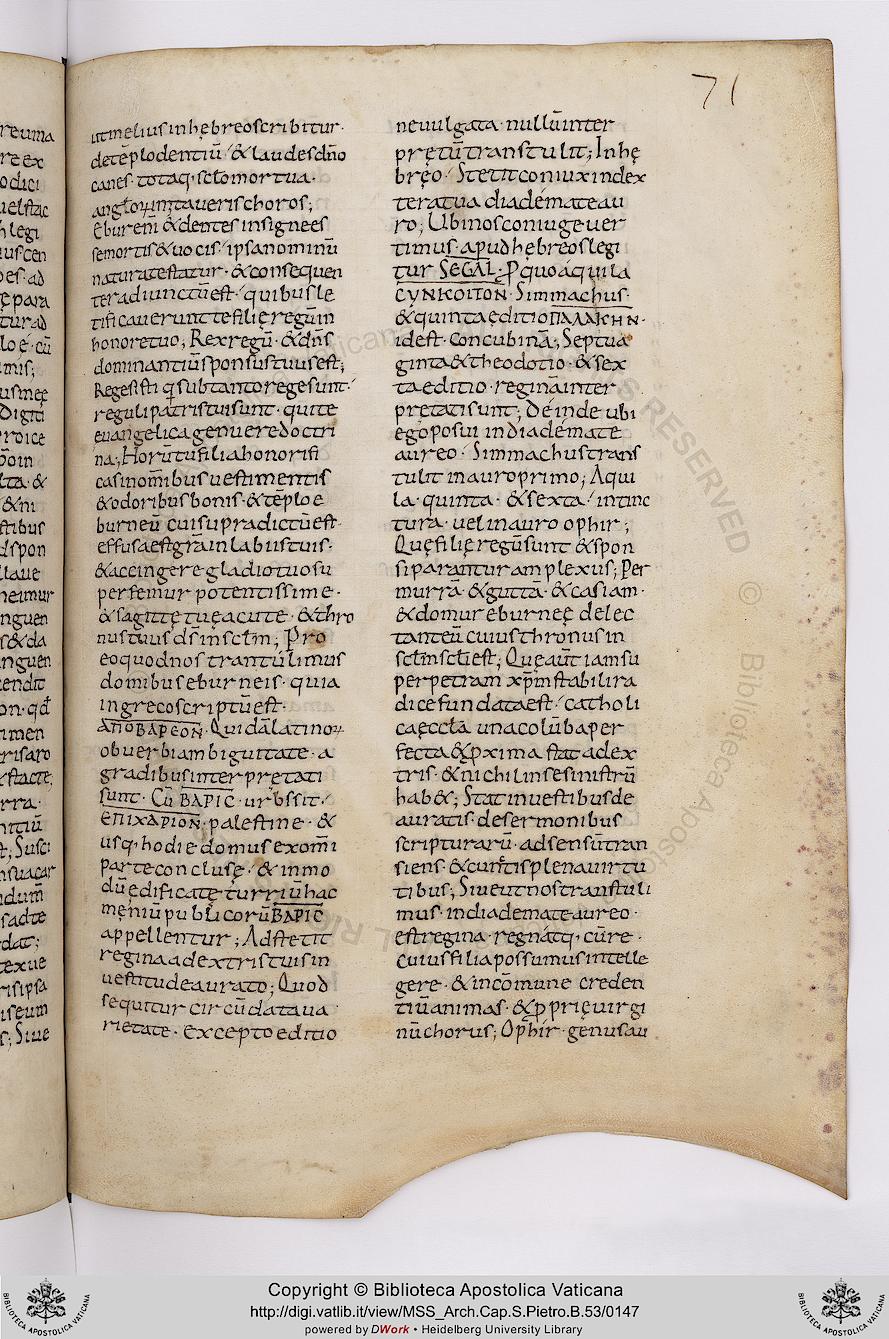 71
utmelius in hębreo scribitur·
detēplo dentiū· & laudes dn̄o
canes· totaq; sc̄lo mortua·
anglorum tau eris choros;
Eburenī & dentes insignees
semortis & uocis· ipsa nominū
natura testatur· & consequen
ter adiunctū est· quibus le
tificauerunt te filię regū in
honore tuo; Rex regū· & dn̄s
dominantiū sponsus tuus est;
Reges isti q sub tanto rege sunt·
reguli patris tui sunt· qui te
euangelica genuere doctri
na; Horū tu filia honorifi
casi nom̄ibus uestimentis
& odoribus bonis· & tēplo e
burneū cui supradictū est·
effusa est gr̄a in labiis tuis·
& accingere gladio tuo su
per femur potentissime·
& sagittę tuę acute· & thro
nus tuus ds̄ in sc̄lm; Pro
eo quod nos trantulimus
domibus eburneis· quia
in greco scriptū est·
ΑΠΟ ΒΑΡΕΟΝ· Quidā latinoꝝ
ob uerbi ambiguitate· a
gradibus interpretati
sunt· Cū ΒΑΡΙC· urbs sit·
ЄΠΙΧΑΡΙΟΝ· palestine· &
usq; hodie domus ex om̄i
parte conclusę· & in mo
dū ędificate turriū hac
męniū publicorū ΒΑΡΙC
appellentur; Adstetit
regina a dextris tuis in
uestitu deaurato; Quod
sequitur circūdata ua
rietate· excepto editio
ne uulgata· nullū inter
prętū transtulit; In hę
bręo· Stetit coniux in dex
tera tua diademate au
ro; Ubi nos coniuge uer
timus· apud hębreos legi
tur SEGAL· P quo aquila
CYNKOITON· Simmachus·
& quinta editio ΠΑΛΑΚΗΝ·
id est· concubinā; Septua
ginta & theodotio· & sex
ta editio· reginā inter
pretati sunt; Deinde ubi
ego posui in diademate
aureo· Simmachus trans
tulit in auro primo; Aqui
la· quinta· & sexta· intinc
tura· uel in auro ophir;
Quę filię regū sunt & spon
si parantur amplexus; Per
murrā· & guttā· & casiam·
& domur eburneę delec
tanteū cuius thronus in
sc̄lm sc̄li est; Quę aūt iam su
per petram xp̄m stabili ra
dice fundata est· catholi
ca ęccl̄a una colūba per
fecta & ꝓxima stat a dex
tris· & nichil in se sinistrū
hab&; Stat in uestibus de
auratis· de sermonibus
scripturarū· ad sensū tran
siens· & cunctis plena uirtu
tibus; Siue ut nos transtuli
mus· in diademate aureo·
est regina· regnatq; cū re·
cuius filia possumus intelle
gere· & in cōmune creden
tiū animas· & ꝓprię uirgi
nū chorus; Ophir· genus au
Copyright © Biblioteca Apostolica Vaticana
http://digi.vatlib.it/view/MSS_Arch.Cap.S.Pietro.B.53/0147
powered by DWork • Heidelberg University Library